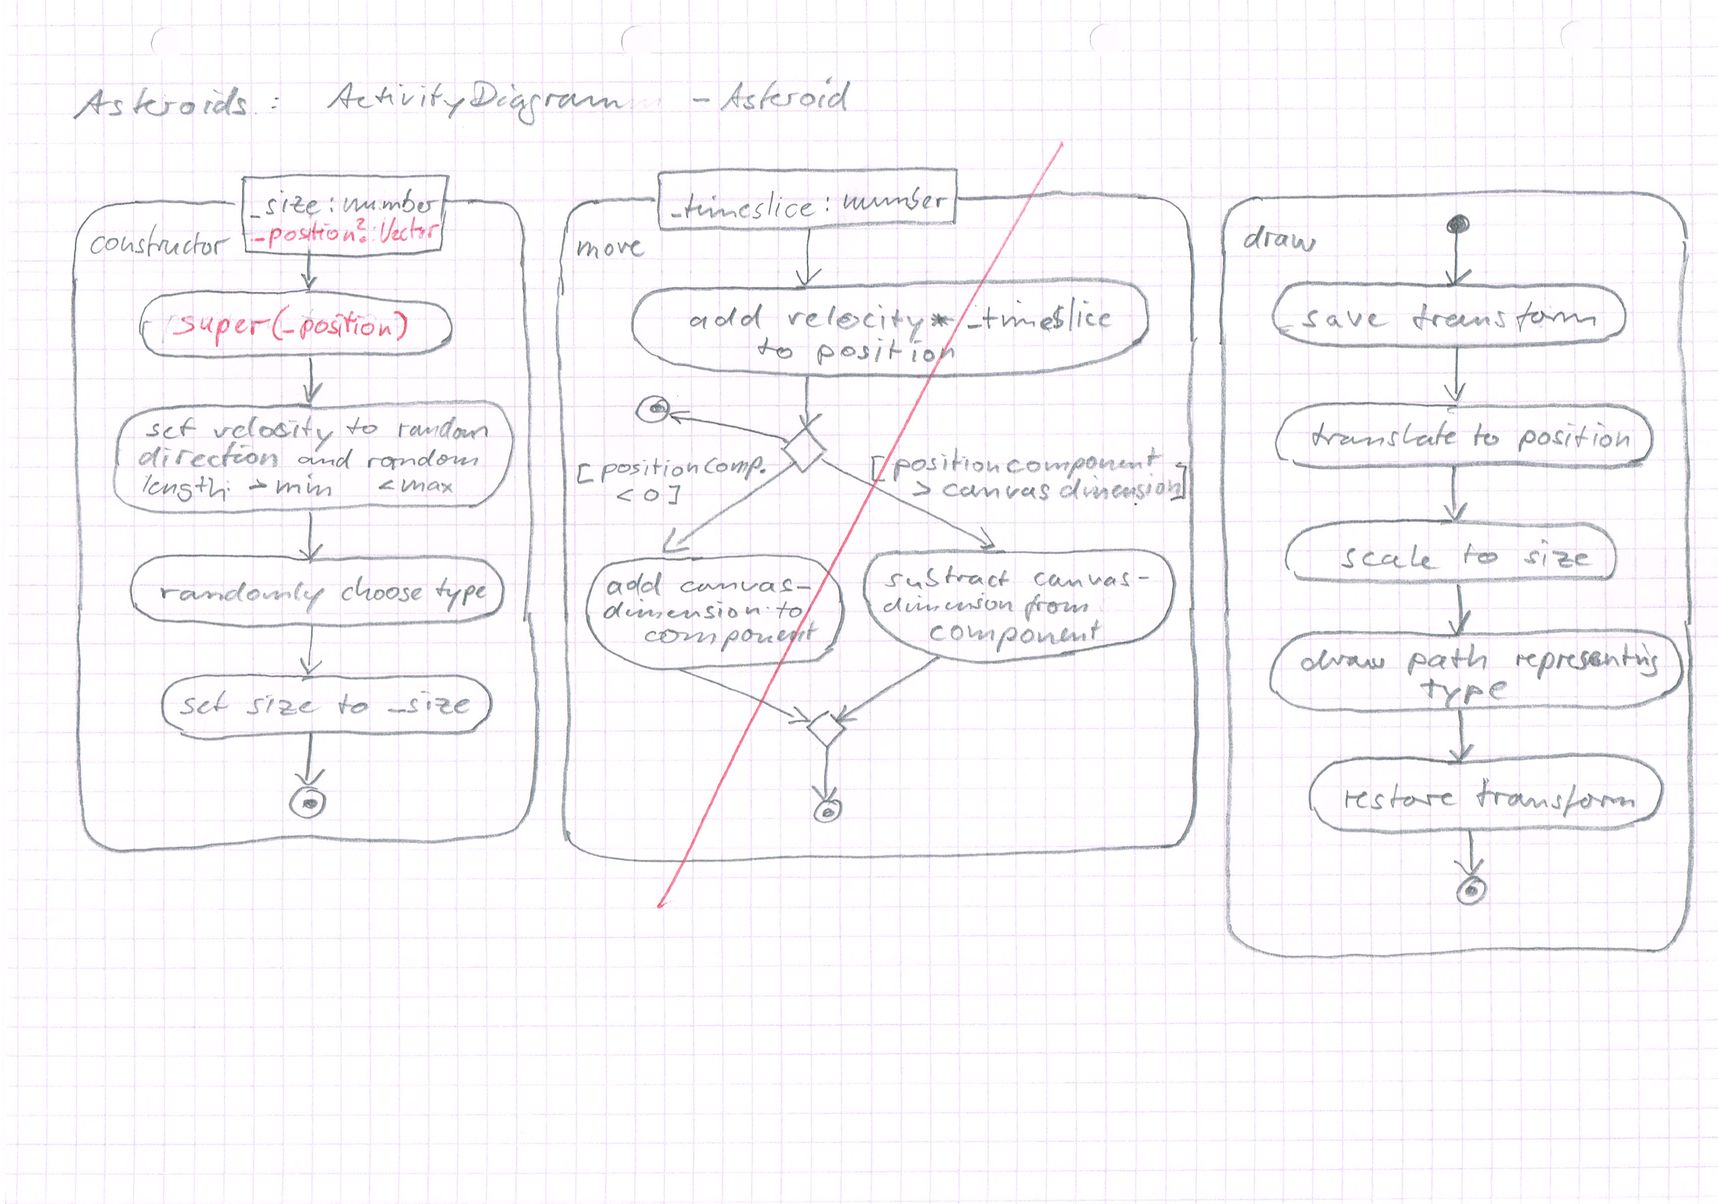 Asteroids: ActivityDiagram - Asteroid
_size: number
_position?: Vector
constructor
super(_position)
set velocity to random
direction and random
length > min < max
randomly choose type
set size to _size
_timeslice: number
move
add velocity * _timeslice
to position
[positionComp.
< 0]
[positioncomponent
> canvasdimension]
add canvas-
dimension to
component
substract canvas-
dimension from
component
draw
save transform
translate to position
scale to size
draw path representing
type
restore transform